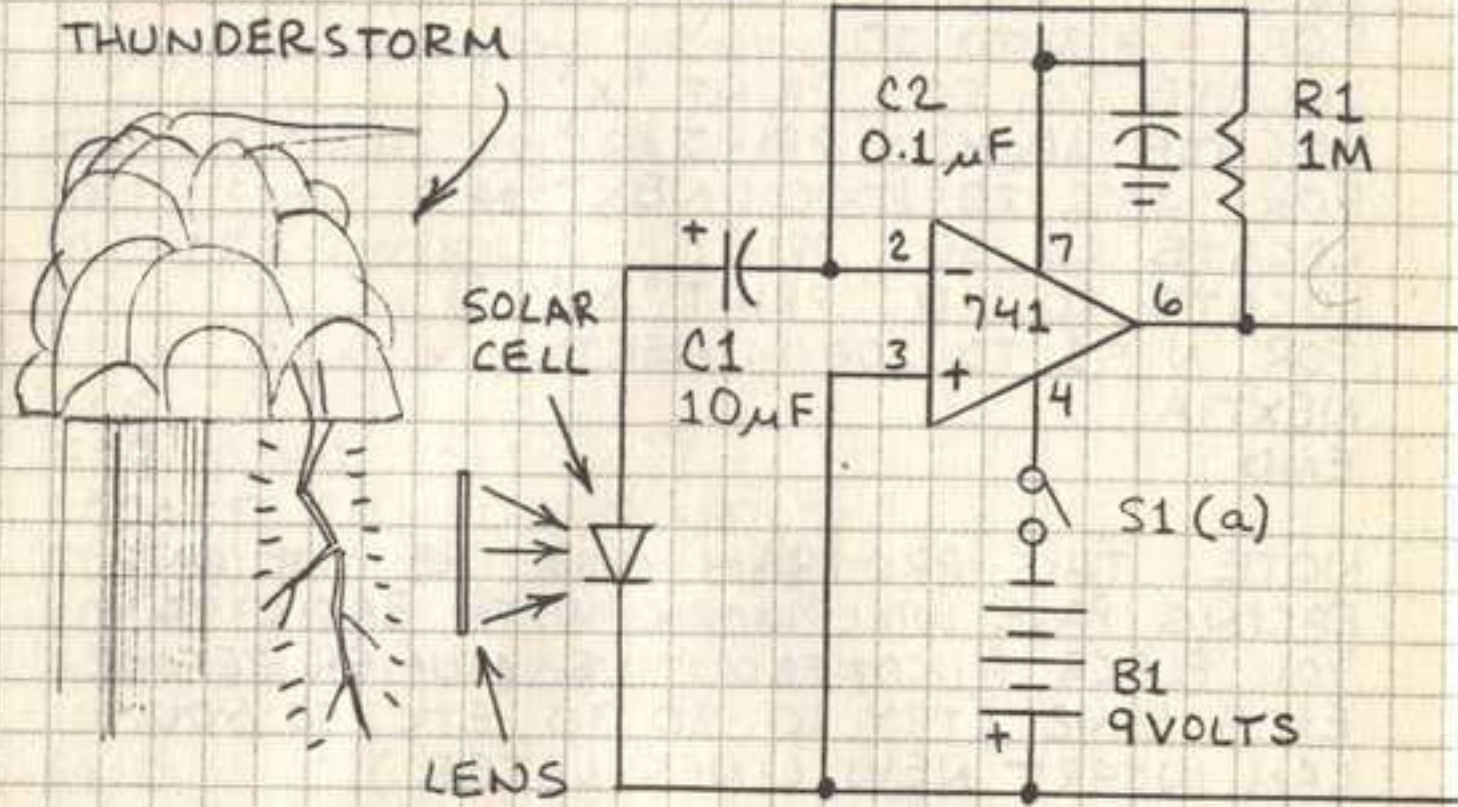 THUNDERSTORM
C2
0.1µF
R1
1M
+
2
-
7
741
6
SOLAR
CELL
C1
10µF
3
+
4
S1(a)
B1
9VOLTS
+
LENS